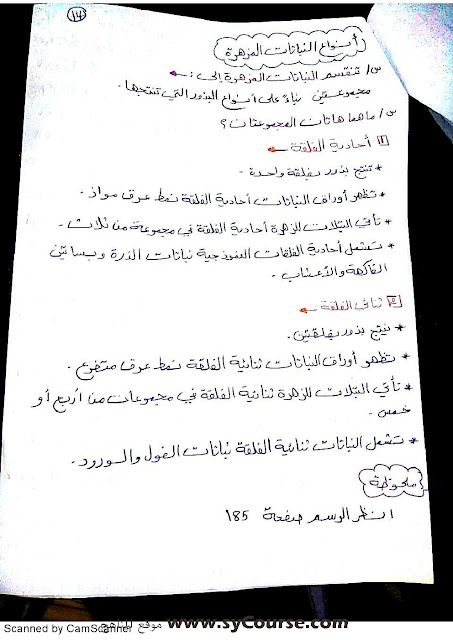 ١٤
أنواع النباتات المزهرة
س/ تنقسم النباتات المزهرة إلى :
مجموعتين بناءً على أنواع البذور التي تنتجها .
س/ ما هما هاتان المجموعتان ؟
١ أحادية الفلقة
* تنتج بذور بفلقة واحدة .
* تظهر أوراق النباتات أحادية الفلقة نمط عرق مواز .
* تأتي البتلات للزهرة أحادية الفلقة في مجموعة من ثلاث .
* تشمل أحادية الفلقات النموذجية نباتات الذرة وبساتين
الفاكهة والأعشاب .
٢ ثنائي الفلقة
* ينتج بذور بفلقتين .
* تظهر أوراق النباتات ثنائية الفلقة نمط عرق متفرع .
* تأتي البتلات للزهرة ثنائية الفلقة في مجموعات من أربع أو
خمس .
* تشمل النباتات ثنائية الفلقة نباتات الفول والورود .
ملحوظة
انظر الرسم صفحة 185
موقع المناهج www.syCourse.com
Scanned by CamScanner